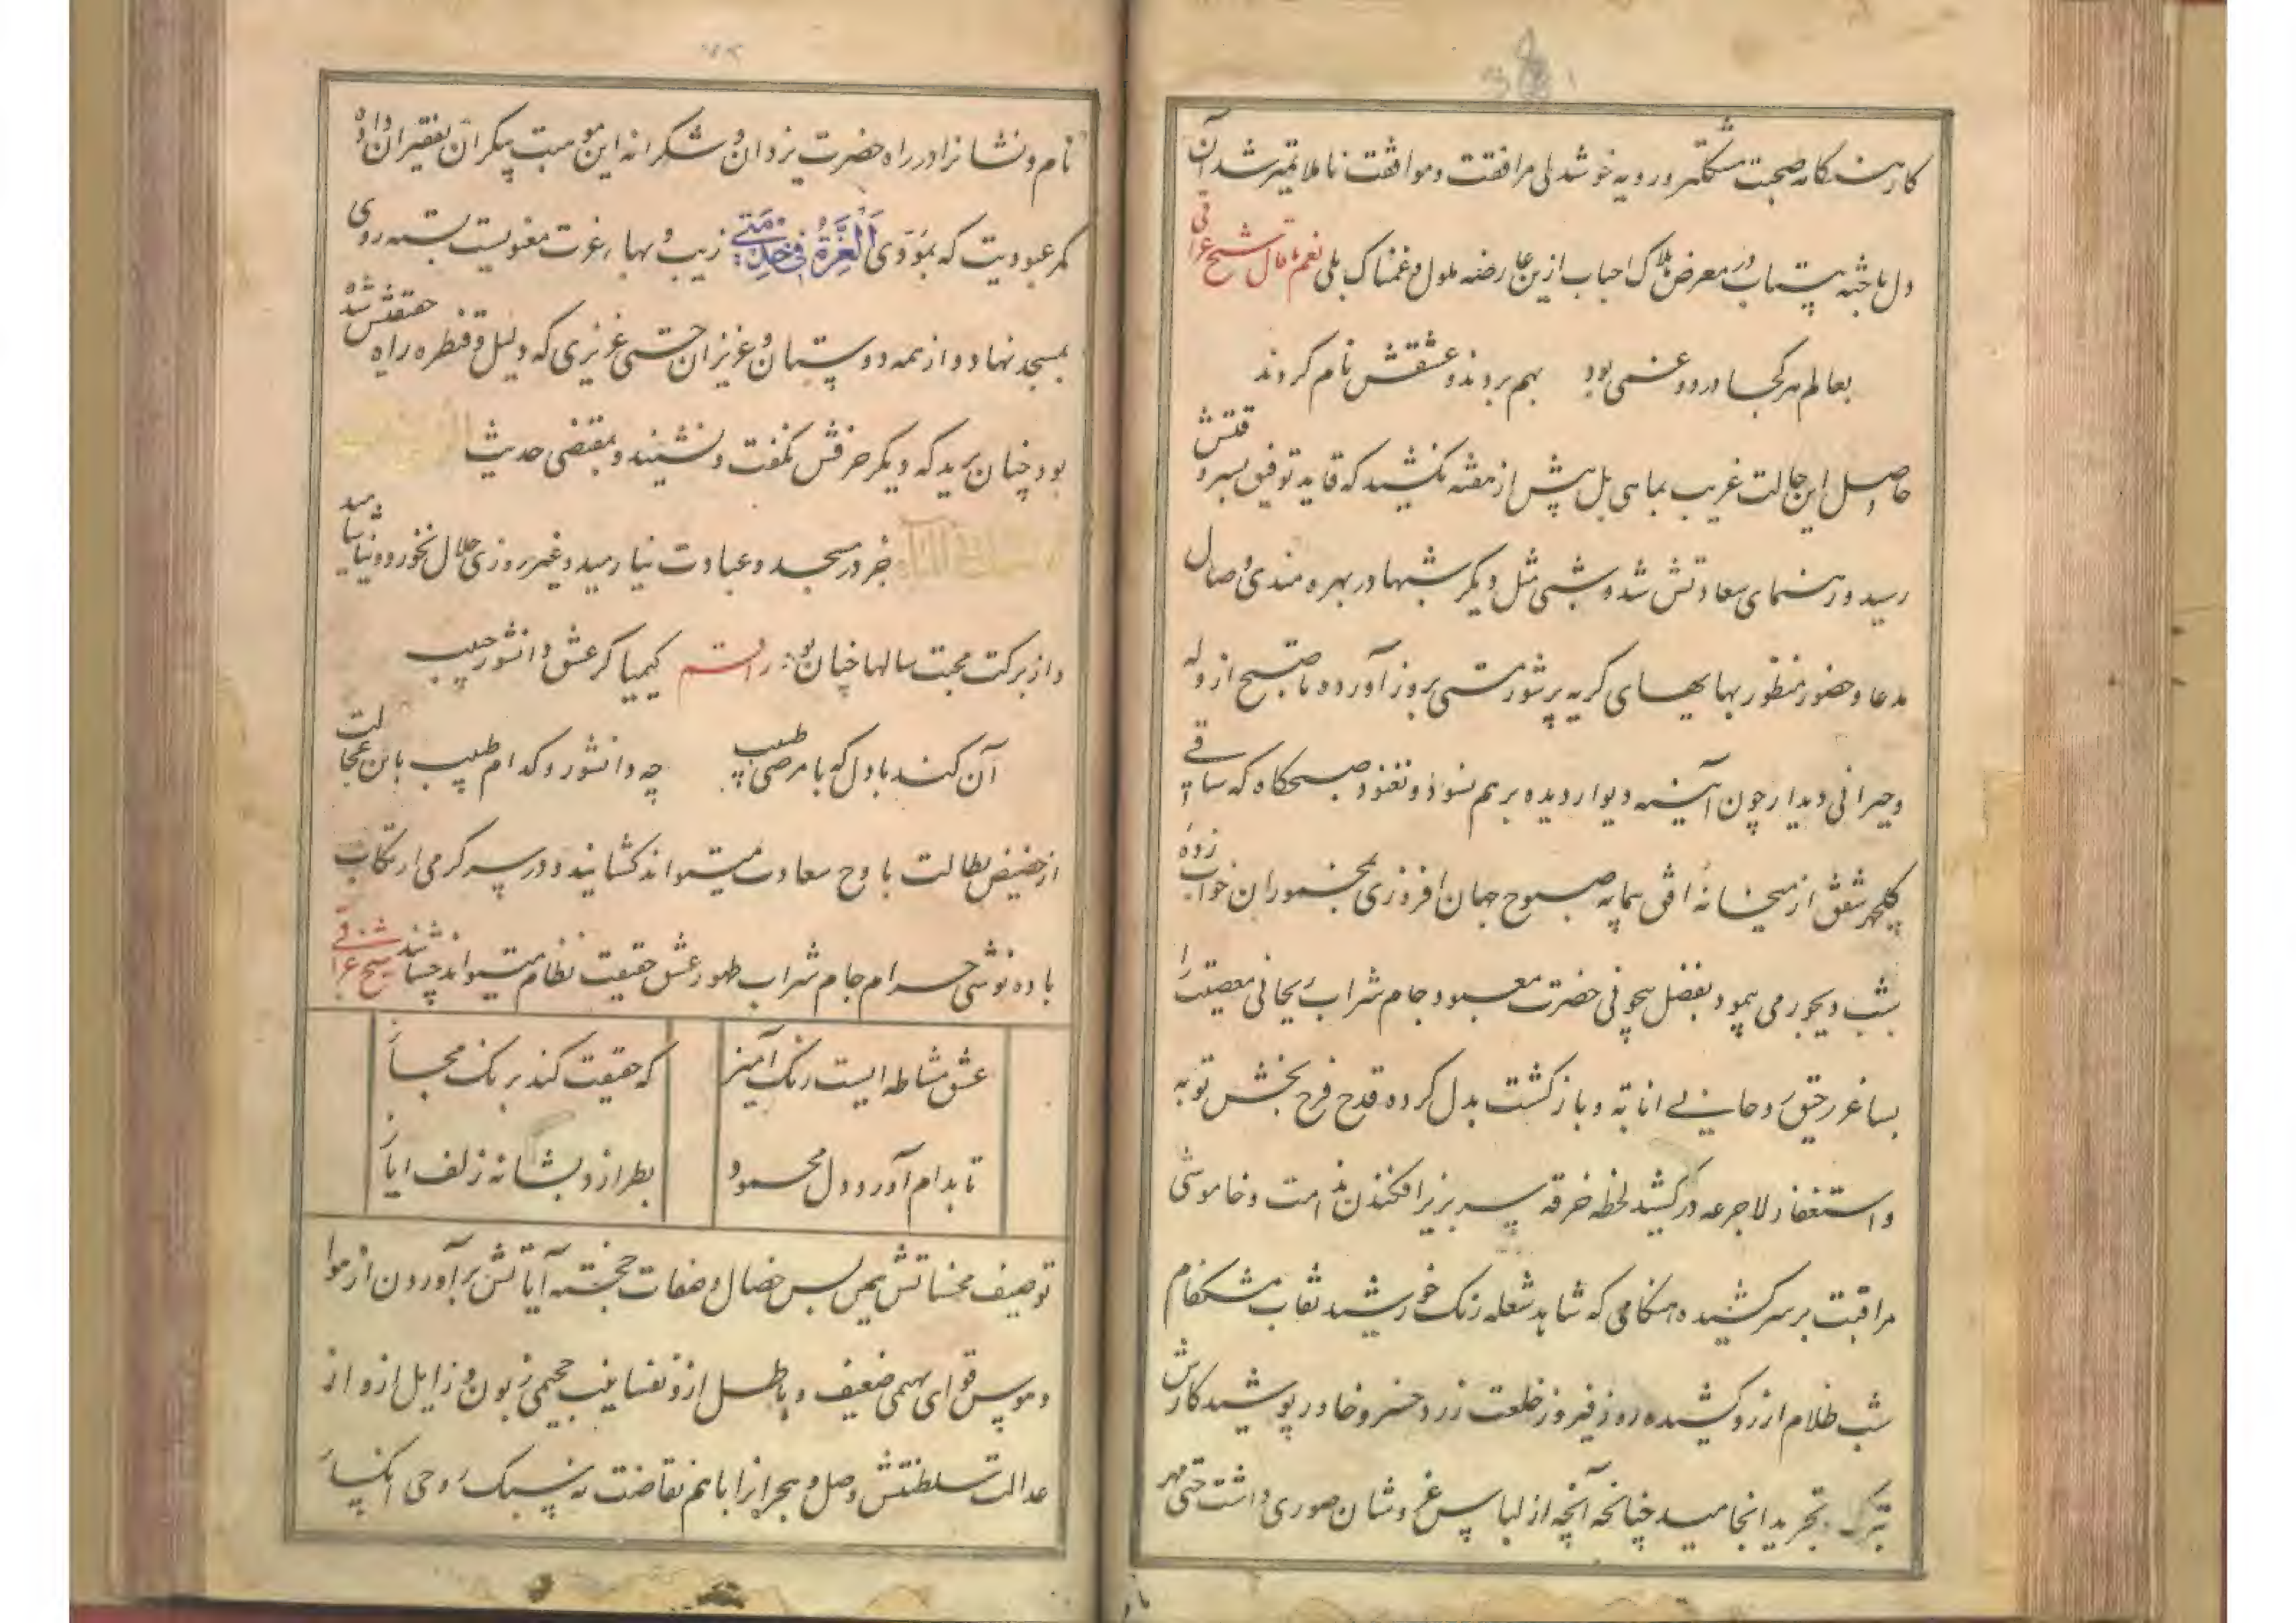 کار هنگامه صحبت شکفته و رویه خوشدلی مرافقت و موافقت ناملایمتر شد آن
دل باخته بیتاب در معرض هلاک احباب ازین عارضه ملول و غمناک بلی نعم ما قال شیخ عراقی
بعالم هر کجا درد و غمی بود بهم بردند و عشقش نام کردند
حاصل این حالت غریب بماهی بل بیش از هفته نکشید که قاید توفیق بسر وقتش
رسید و رهنمای سعادتش شد و شبی مثل دیگر شبها در بهره مندی وصال
مدعا و حضور منظور بهایهای گریه پرشور مستی بروز آورده تا صبح از وله
و حیرانی دیدار چون آینه دیوار دیده بر هم نسوده و نغنود صبحگاه که ساقی
گلچهر شفق از میخانه افق پیمانه صبوح جهان افروزی بمخموران خواب زده
شب دیجور می پیمود بفضل بیچونی حضرت معبود جام شراب ریحانی معصیت را
بساغر رحیق روحانی انابه و بازگشت بدل کرده قدح فرح بخش توبه
و استغفار لاجرعه درکشید لحظه خرقه سر بزیر افکندن ندامت و خاموشی
مراقبت بر سر کشیده هنگامی که شاهد شعله رنگ خورشید نقاب مشکفام
شب ظلام از رو کشیده روز فیروز خلعت زرد خسرو خاور پوشید کارش
بترک و تجرید انجامید چنانچه آنچه از لباس عز و شان صوری داشت حتی مهر
نام و نشانرا در راه حضرت یزدان و شکرانه این موهبت بیکران بفقیران داده
کمر عبودیت که بمؤدی اَلْعِزَّةُ فی خِدْمَتی زیب و بهاء عزت معنویست بسته روی
بمسجد نهاد و از همه دوستان و عزیزان حتی عزیزی که دلیل و قنطره راه حقیقتش شده
بود چنان برید که دیگر حرفش نگفت و نشنید و بمقتضی حدیث
جز در مسجد و عبادت نیارمید و غیر روزی حلال نخورد و نیاشامید
و از برکت محبت سالها چنان بود راقم کیمیاگر عشق دانشور حبیب
آن کند با دل که با مرضی طبیب چه دانشور و کدام طبیب باین عجالت
از حضیض بطالت باوج سعادت میتواند کشانید و در سرگرمی ارتکاب
باده نوشی حرام جام شراب طهور عشق حقیقت نظام میتواند چشانید شیخ عراقی
عشق مشاطه ایست رنگ آمیز که حقیقت کند برنگ مجاز
تا بدام آورد دل محمود بطرازد بشانه زلف ایاز
توصیف محسناتش همین بس خصال و صفات خجسته آیاتش برآوردن از هوا
و هوس قوای بهیمی ضعیف و باطل ازو نفسانیت جحیمی زبون و زایل ازو از
عدالت سلطنتش وصل و هجرانرا با هم نقاضت نه سبک روحی